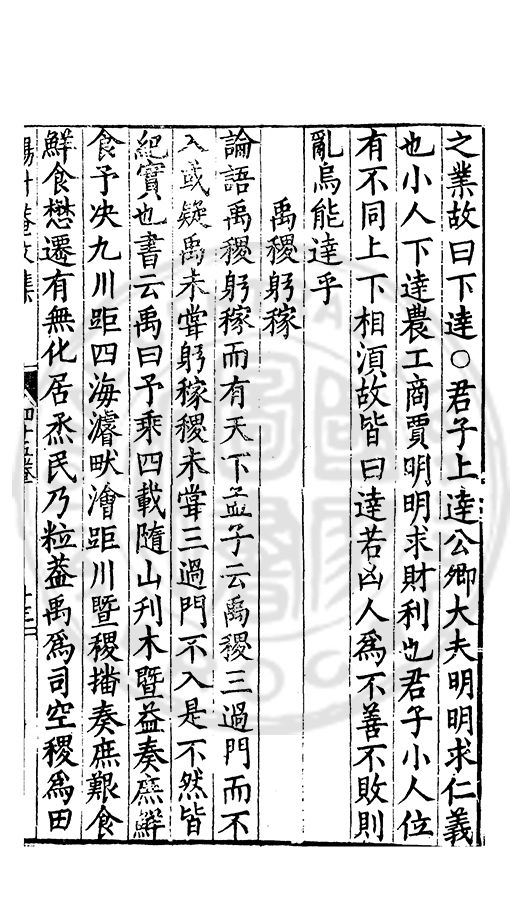 之業故曰下達○君子上達公卿大夫明明求仁義
也小人下達農工商賈明明求財利也君子小人位
有不同上下相湏故皆曰達若凶人爲不善不敗則
亂烏能達乎
禹稷躬稼
論語禹稷躬稼而有天下孟子云禹稷三過門而不
入或疑禹未嘗躬稼稷未嘗三過門不入是不然皆
紀實也書云禹曰予乘四載隨山刋木暨益奏庶鮮
食予决九川距四海濬畎澮距川暨稷播奏庶艱食
鮮食懋遷有無化居烝民乃粒葢禹爲司空稷爲田